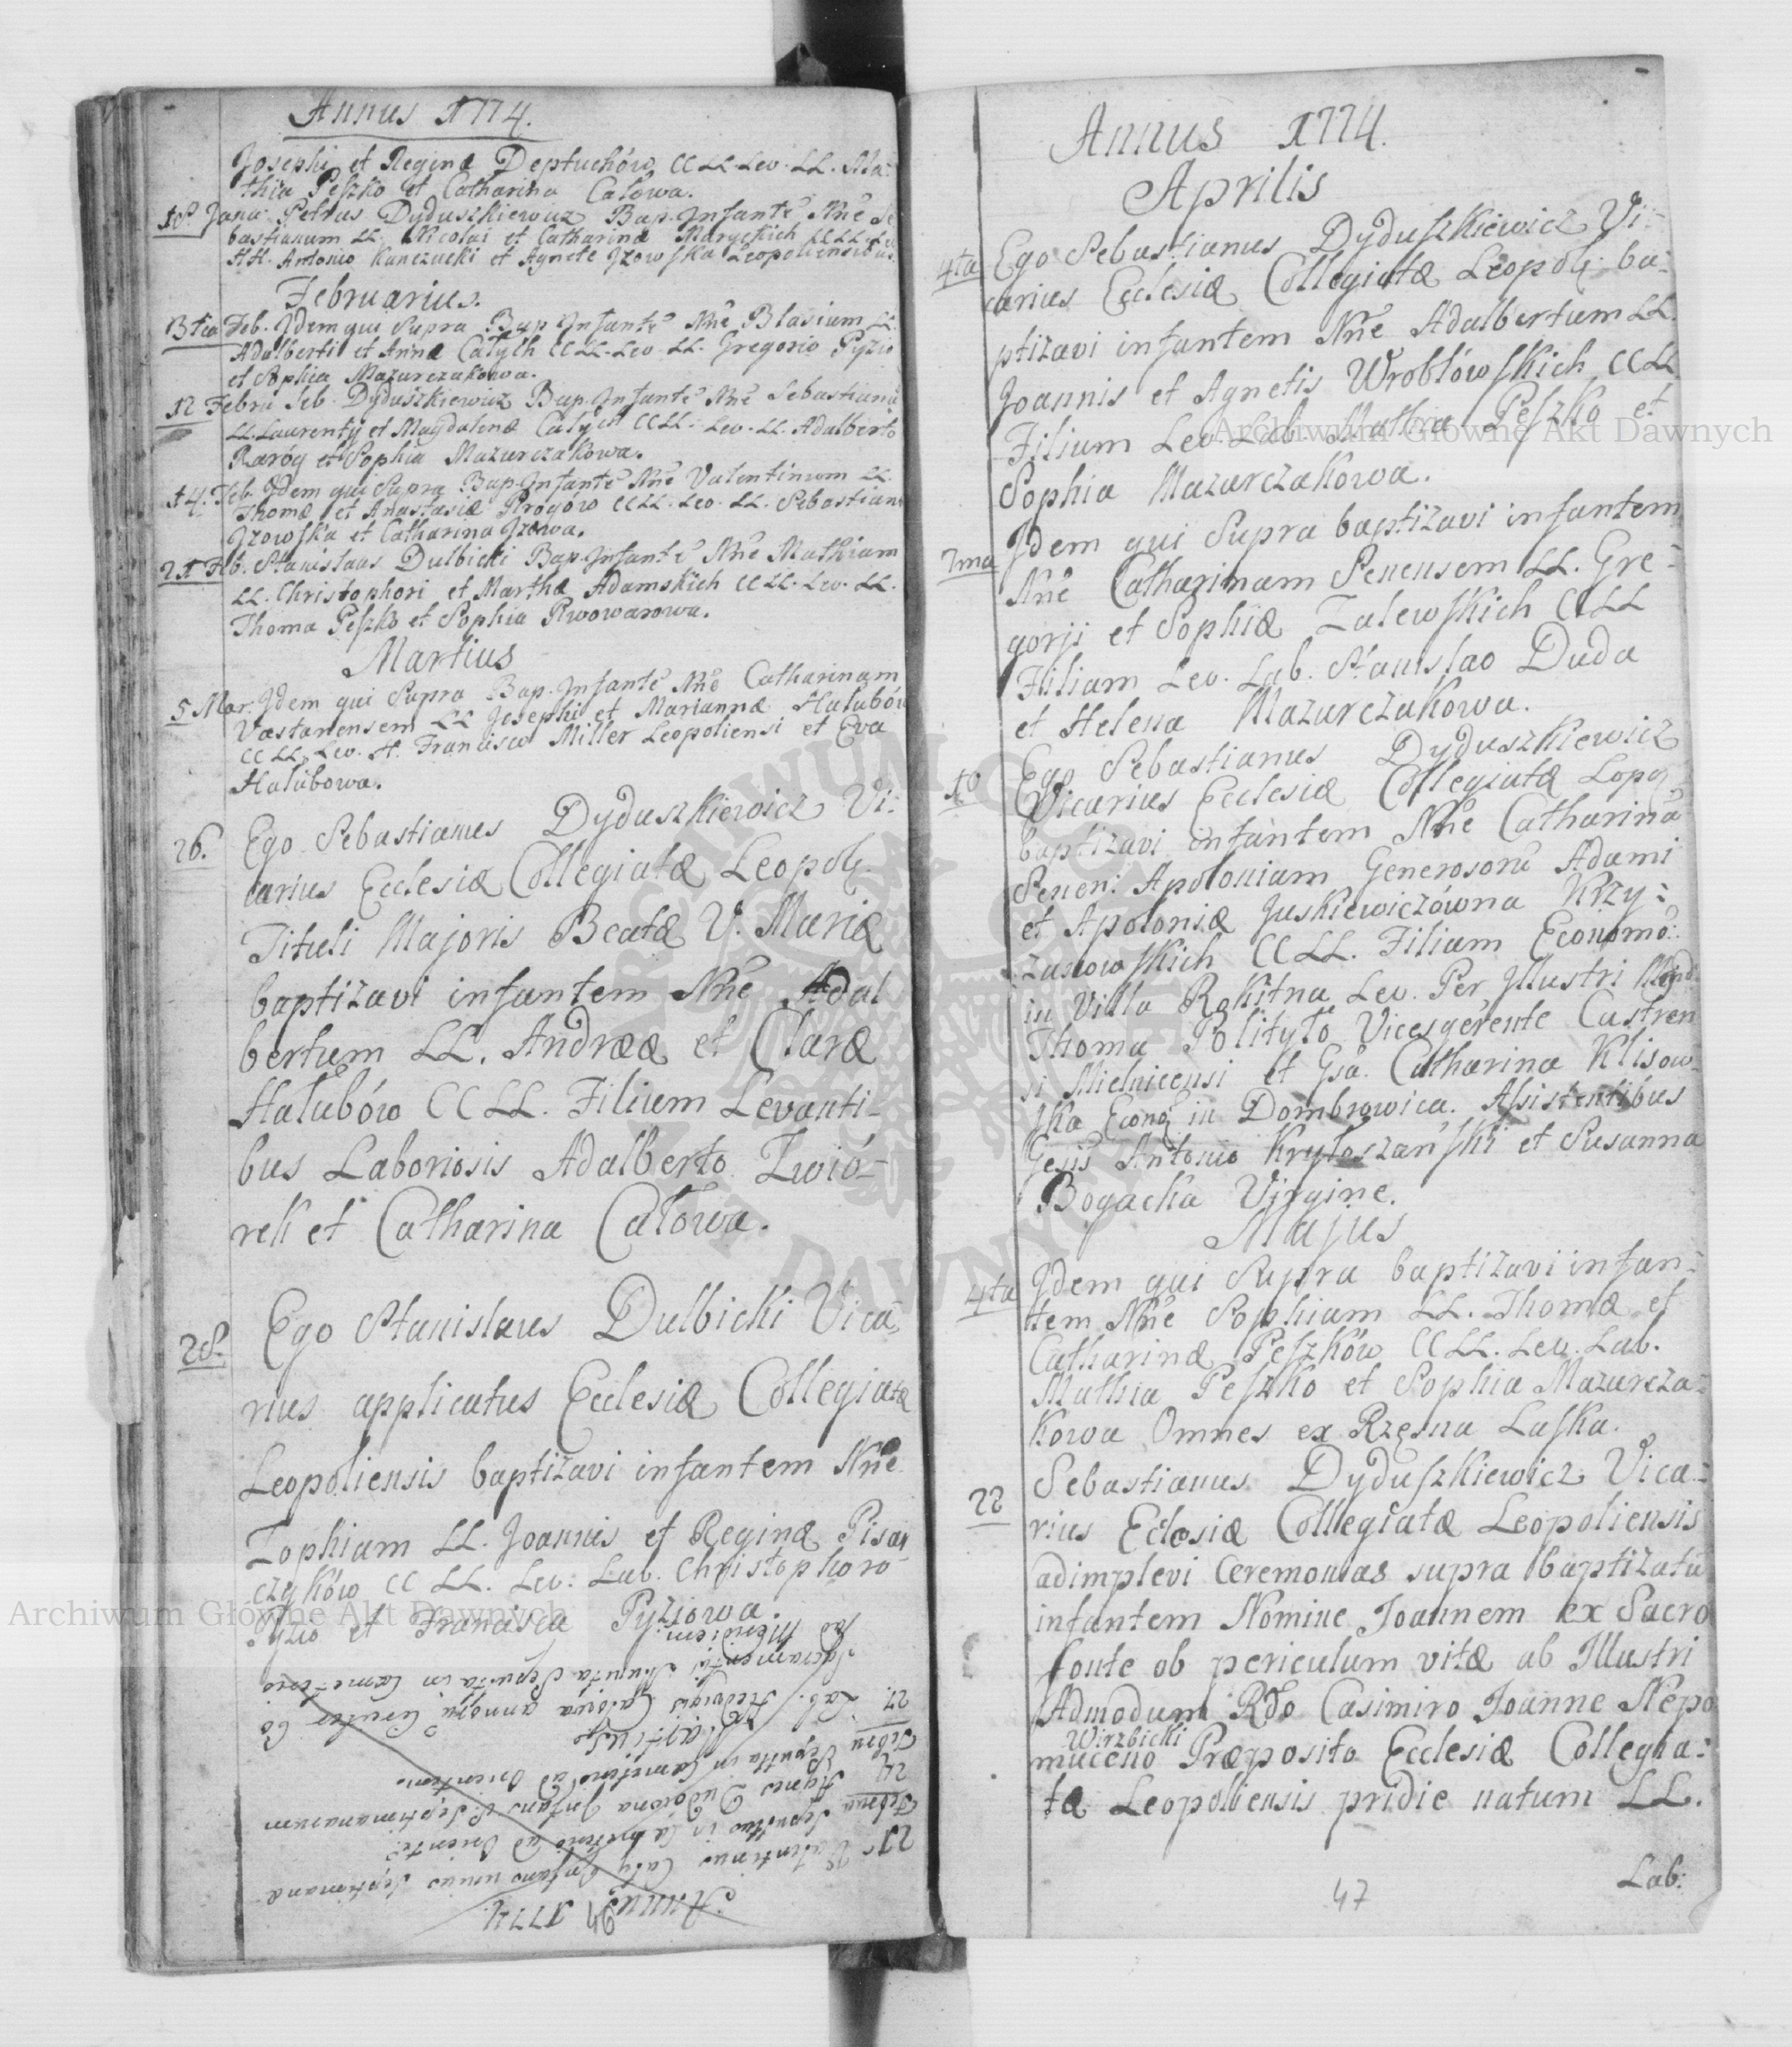 Annus 1774.
Josephi et Reginæ Deptuchów CCLL. Lev. LL. Ma-
thia Peszko et Catharina Całowa.
18. Janu. Petrus Dyduszkiewicz Bap. Infantē Nñe Se
bastianum LL. Nicolai et Catharinæ Maryckich CCLL. Lev
HH. Antonio Kunczucki et Agnete Izowska Leopoliensibus.
Februarius.
3tia Feb. Idem qui Supra Bap Infantē Nñe Blasium LL.
Adalberti et Annæ Całych CCLL. Lev. LL. Gregorio Pyzio
et Sophia Mazurczakowa.
12 Febru Seb. Dyduszkiewicz Bap. Infantē Nñe Sebastianū
LL. Laurentÿ et Magdalenæ Całych CCLL. Lev. LL. Adalberto
Raróg et Sophia Mazurczakowa.
14. Feb. Idem qui Supra Bap. Infantē Nñe Valentinum LL.
Thomæ et Anastasiæ Rrogów CCLL. Lev. LL. Sebastiano
Izowska et Catharina Izowa.
21 Feb. Stanislaus Dulbicki Bap. Infantē Nñe Mathiam
LL. Christophori et Marthæ Adamskich CCLL. Lev. LL.
Thoma Peszko et Sophia Rwowarowa.
Martius
5 Mar. Idem qui Supra Bap. Infantē Nñe Catharinam
LL Josephi et Mariannæ Hałubów
CCLL. Lev. H. Francisco Miller Leopoliensi et Eva
Hałubowa.
26. Ego Sebastianus Dyduszkiewicz Vi-
carius Ecclesiæ Collegiatæ Leopol.
Tituli Majoris Beatæ V. Mariæ
baptizavi infantem Nñe Adal
bertum LL. Andreæ et Claræ
Hałubów CCLL. Filium Levanti-
bus Laboriosis Adalberto Zwió-
rek et Catharina Całowa.
28. Ego Stanislaus Dulbicki Vica-
rius applicatus Ecclesiæ Collegiatæ
Leopoliensis baptizavi infantem Nñe
Zophiam LL. Joannis et Reginæ Pisar
czyków CC LL. Lev. Lab. Christophoro
Pyzio et Francisca Pyziowa
Annus 1774.
21 Valentinus Cały Infans unius Septimanæ
Febru Sepultus in Cæmeterio ad Orientē.
24 Agnes Dudowna Infans Septimanarum
Febru Sepulta in Cæmeterio ad Orientem.
Martius
27. Lab. Hedvigis Całowa annorū Circiter 60
Sacramentis Munita Sepulta in Cæmeterio
ad Meridiem
Annus 1774.
Aprilis
4ta Ego Sebastianus Dyduszkiewicz Vi-
carius Ecclesiæ Collegiatæ Leopol. ba-
ptizavi infantem Nñe Adalbertum LL.
Joannis et Agnetis Wrobłówskich CCLL
Filium Lev. Lab. Mathia Peszko et
Sophia Mazurczakowa.
7ma Idem qui Supra baptizavi infantem
Nñe Catharinam Senensem LL. Gre-
gorji et Sophiæ Zalewskich CCLL
Filiam Lev. Lab. Stanislao Duda
et Helena Mazurczakowa.
10 Ego Sebastianus Dyduszkiewicz
Vicarius Ecclesiæ Collegiatæ Lopol.
baptizavi infantem Nñe Catharinā
Senen: Apoloniam Generosorū Adami
et Apoloniæ Juskiewiczówna Krzy-
zanowskich CCLL. Filiam Economo
in Villa Rokitna Lev. Per Illustri
Thoma Polityło Vicesgerente Castren
si Mielnicensi et Gsa. Catharina Klisow
ska Econo in Dombrowica. Assistentibus
Gesis Antonio Kryłoszański et Susanna
Bogacka Virgine.
Majus
4ta Idem qui Supra baptizavi infan-
tem Nñe Sophiam LL. Thomæ et
Catharinæ Peszków CCLL. Lev. Lab.
Mathia Peszko et Sophia Mazurcza-
kowa Omnes ex Rzęsna Laska.
22 Sebastianus Dyduszkiewicz Vica-
rius Eclesiæ Collegiatæ Leopoliensis
adimplevi Ceremonias supra baptizatū
infantem Nomine Joannem ex Sacro
fonte ob periculum vitæ ab Illustri
Admodum Rdo Casimiro Joanne Nepo
Wirzbicki
muceno Præposito Ecclesiæ Collegia-
tæ Leopoliensis pridie natum LL.
Lab:
47
Archiwum Główne Akt Dawnych
Archiwum Główne Akt Dawnych